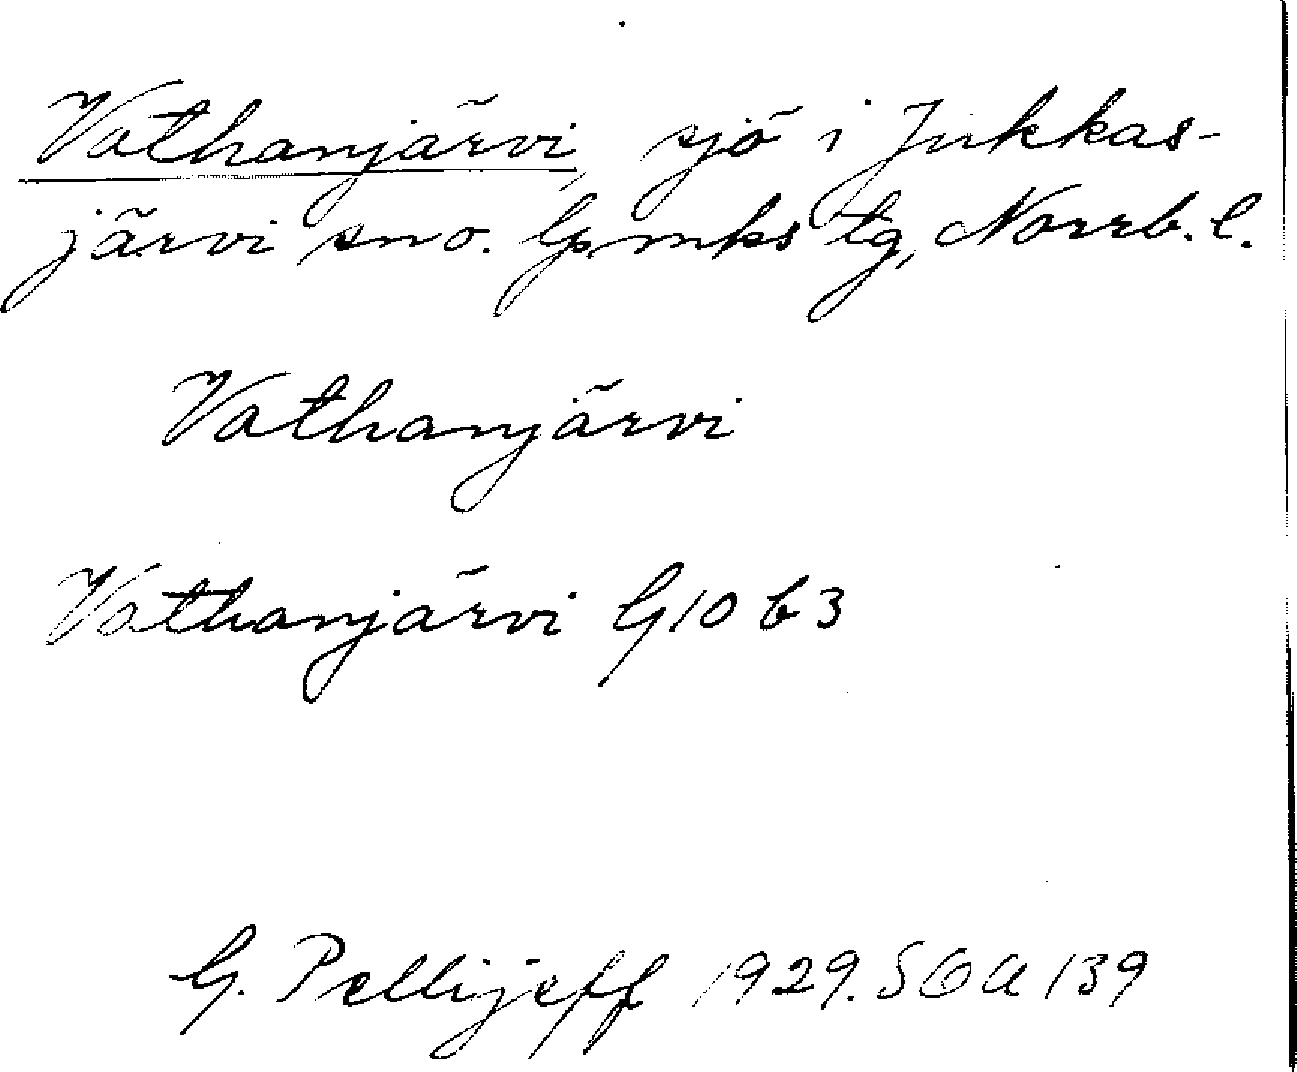 Vathanjärvi, sjö i Jukkas-
järvi sn o. lpmks tg, Norrb. l.
Vathanjärvi
Vathanjärvi G10 b3
G. Pellijeff 1929. SOA 139